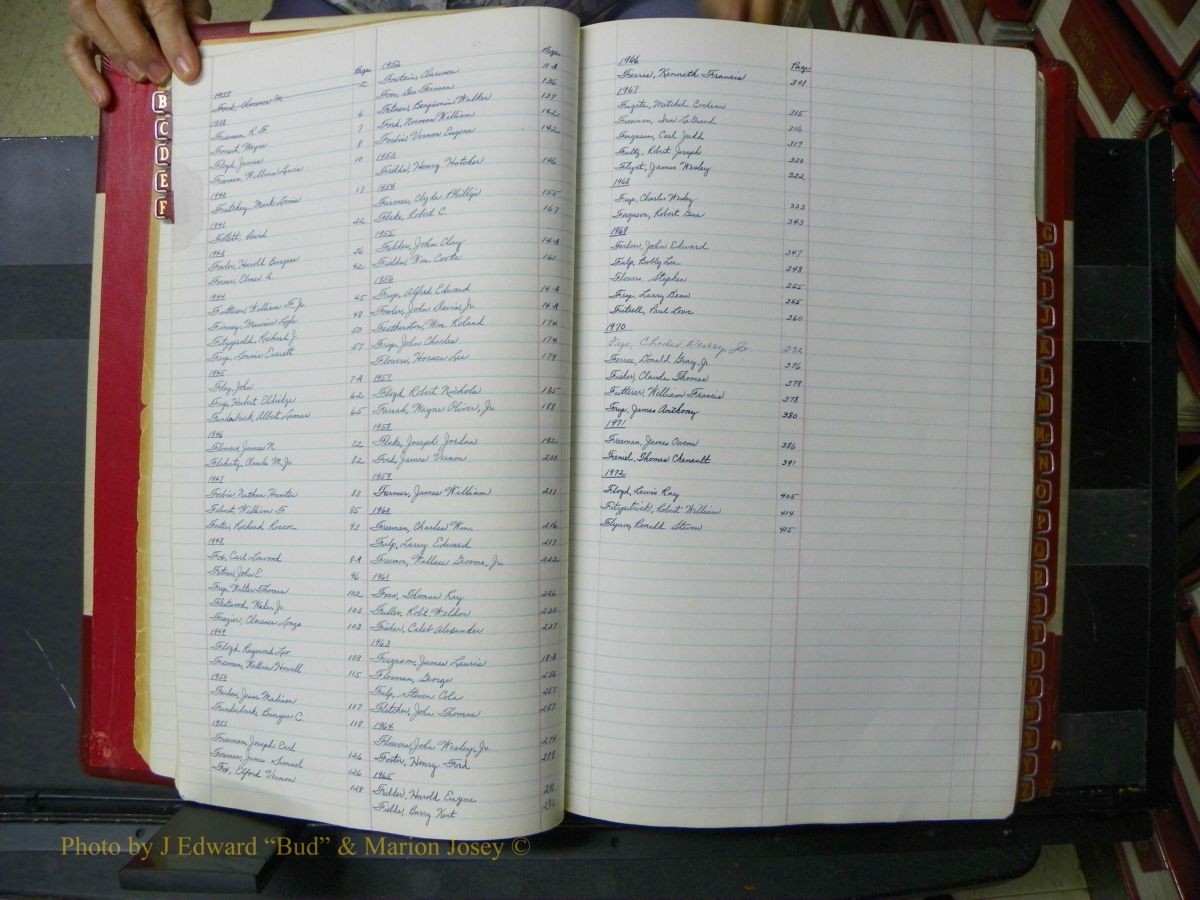 Page
1937
Ford, Clarence M. 2
1938
Freeman, R. G. 6
Forest Wayne 7
Floyd, James 8
Freeman, Wilburn Lewis 10
1940
Frutchey, Mark Lorine 17
1941
Follett, David 22
1943
Fowler, Harold Burgess 36
Former, Elmer A. 42
1944
Futterer, William F. Jr. 45
Finney, Maurice 48
Fitzgerald, Richard J. 50
Frye, Lonnie Everett 57
1945
Foley, John 7-A
Frye, Hubert Eldridge 62
Funderburk, Albert Lamar 65
1946
Flowers, James N. 72
Flaherty, Claude M. Jr. 82
1947
Forbis, Nathan Hunter 83
William F. 85
Foster, Richard Roscoe 93
1948
Fox, Carl Lewond 8-A
Fetner, John E. 96
Frye, Walter Thomas 102
Fleetwood, Wade, Jr. 103
Frazier, Clarence Longo 103
1949
Floyd, Raymond Leo 108
Freeman, Wallace Howell 115
1950
Furlow, Jesse Madison 117
Funderburk, Bunyan C. 118
1951
Freeman, Joseph Earl 126
Foreman, James Samuel 126
Fox, Elford Vernon 128
Page
1952
Fountain, Clarence 11-A
Foon, Gee Forman 136
Fetner, Benjamin Walker 137
Ford, Norman William 142
Forbis Vernon Eugene 142
1953
Fields, Henry Hutcher 146
1954
Furness, Clyde Phillip 155
Flake, Robert C. 167
1955
Fielder, John Clay 14-A
Fields, Wm. Cooke 161
1956
Frye, Alfred Edward 14-A
Fowler, John Davis, Jr. 14-A
Featherston, Wm. Roland 174
Frye, John Charles 174
Flowers, Horace Lee 179
1957
Floyd, Robert Nichols 185
Farrah, Wayne Oliver, Jr. 188
1958
Flake, Joseph Jordan 192
Ford, James Vernon 200
1959
Farmer, James William 211
1960
Freeman, Charles Wm. 216
Fulp, Larry Edward 217
Freeman, Wallace Groome, Jr. 222
1961
Foss, Thomas Ray 226
Fuller, Robt. Weldon 230
Fisher, Calet Alexander 237
1963
Ferguson, James Lauris 18-A
Flosman, George 256
Fulp, Steven Cola 257
Fletcher, John Thomas 257
1964
Flowers, John Wesley, Jr. 274
Foster, Henry Ford 278
1965
Fielder, Harold Eugene 281
Fields, Barry Kent 282
1966
Page
Ferris, Kenneth Francis 301
1967
Fugate, Mitchel Cochran 315
Freeman, Ira LeGrand 316
Ferguson, Carl Judd 317
Fultz, Robert Joseph 320
Flynt, James Wesley 322
1968
Frye, Charles Wesley 333
Ferguson, Robert Gene 343
1969
Furlow, John Edward 347
Fulp, Bobby Lee 348
Flowers, Stephen 355
Frye, Larry Dean 355
Futrell, Paul Lowe 360
1970
Frye, Charles Wesley Jr. 372
Ferree, Donald Gray, Jr. 376
Fisher, Claude Thomas 378
Futterer, William Francis 378
Frye, James Anthony 380
1971
Freeman, James Owens 386
Fremel, Thomas Chenault 391
1972
Floyd, Lewis Ray 405
Fitzpatrick, Robert William 414
Flynn, Ronald Steven 415
B
C
D
E
F
G
H
I
J
K
L
M
Mc
N
O
P
Q
R
S
T
U
V
W
X
Y
Z
Photo by J Edward “Bud” & Marion Josey ©